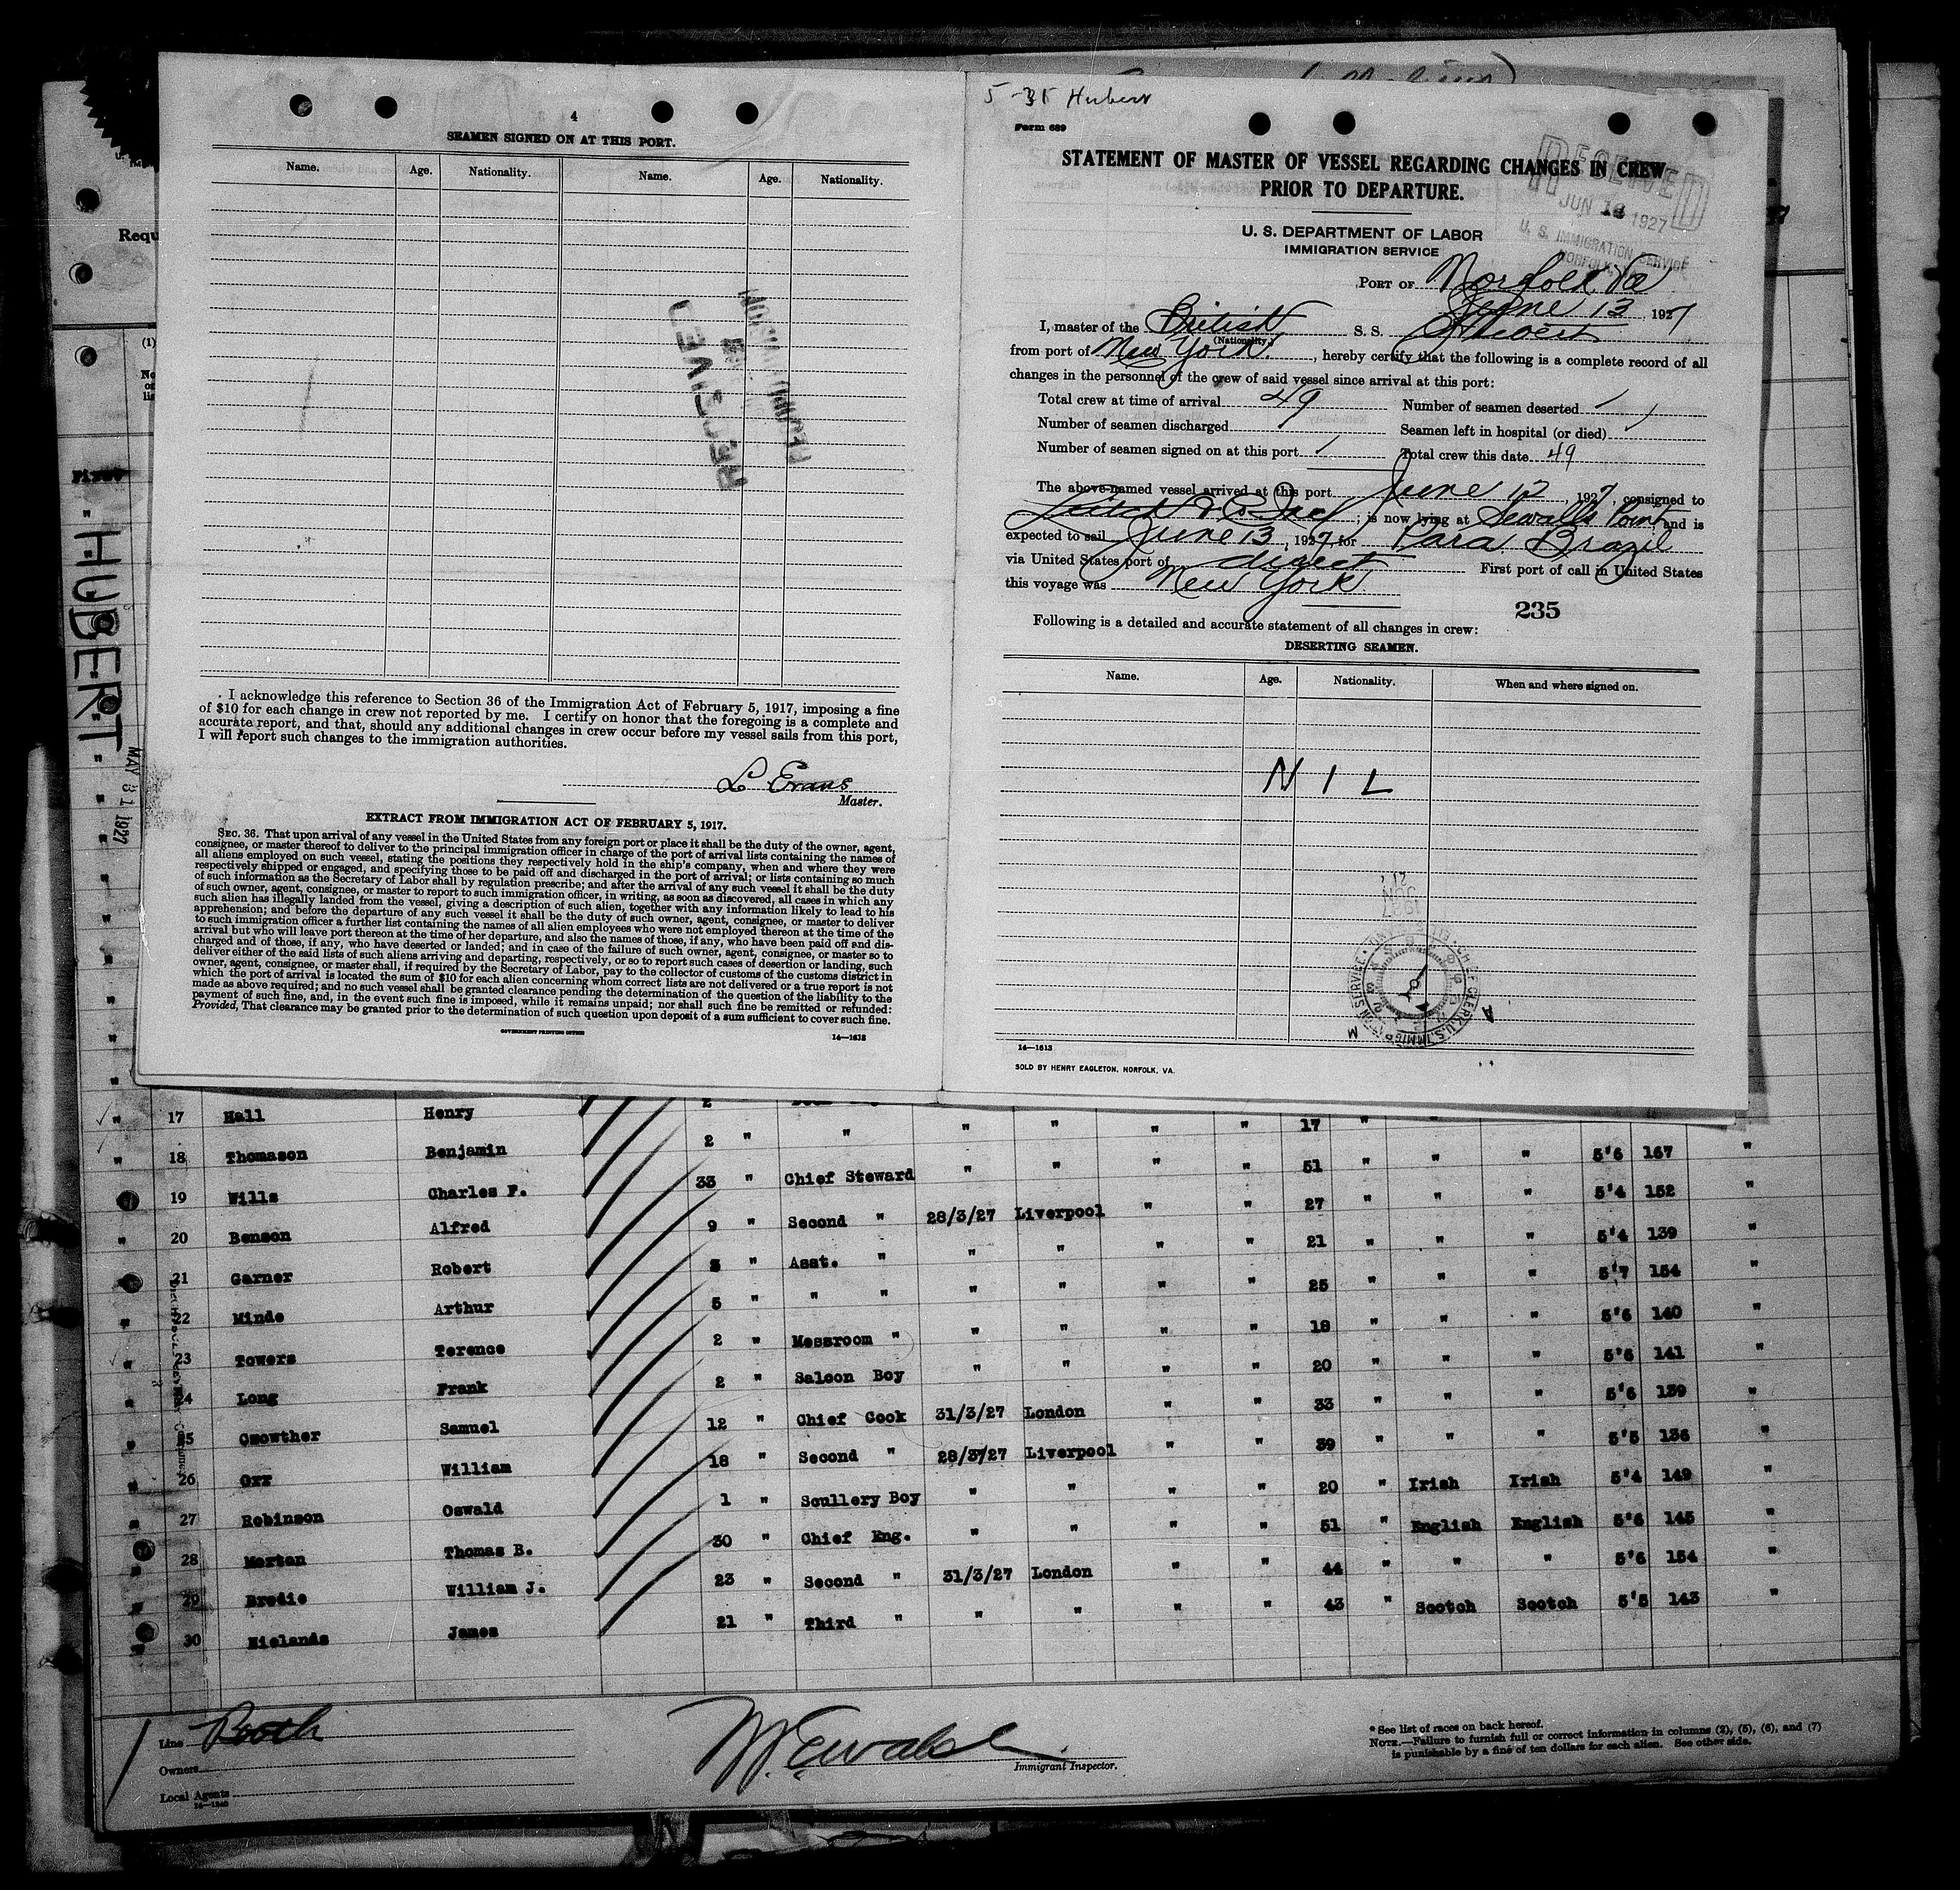 4
SEAMEN SIGNED ON AT THIS PORT.
Name. Age. Nationality. Name. Age. Nationality.
RECEIVED
I acknowledge this reference to Section 36 of the Immigration Act of February 5, 1917, imposing a fine
of $10 for each change in crew not reported by me. I certify on honor that the foregoing is a complete and
accurate report, and that, should any additional changes in crew occur before my vessel sails from this port,
I will report such changes to the immigration authorities.
L Evans
Master.
EXTRACT FROM IMMIGRATION ACT OF FEBRUARY 5, 1917.
SEC. 36. That upon arrival of any vessel in the United States from any foreign port or place it shall be the duty of the owner, agent,
consignee, or master thereof to deliver to the principal immigration officer in charge of the port of arrival lists containing the names of
all aliens employed on such vessel, stating the positions they respectively hold in the ship's company, when and where they were
respectively shipped or engaged, and specifying those to be paid off and discharged in the port of arrival; or lists containing so much
of such information as the Secretary of Labor shall by regulation prescribe; and after the arrival of any such vessel it shall be the duty
of such owner, agent, consignee, or master to report to such immigration officer, in writing, as soon as discovered, all cases in which any
such alien has illegally landed from the vessel, giving a description of such alien, together with any information likely to lead to his
apprehension; and before the departure of any such vessel it shall be the duty of such owner, agent, consignee, or master to deliver
to such immigration officer a further list containing the names of all alien employees who were not employed thereon at the time of the
arrival but who will leave port thereon at the time of her departure, and also the names of those, if any, who have been paid off and dis-
charged and of those, if any, who have deserted or landed; and in case of the failure of such owner, agent, consignee, or master so to
deliver either of the said lists of such aliens arriving and departing, respectively, or so to report such cases of desertion or landing, such
owner, agent, consignee, or master shall, if required by the Secretary of Labor, pay to the collector of customs of the customs district in
which the port of arrival is located the sum of $10 for each alien concerning whom correct lists are not delivered or a true report is not
made as above required; and no such vessel shall be granted clearance pending the determination of the question of the liability to the
payment of such fine, and, in the event such fine is imposed, while it remains unpaid; nor shall such fine be remitted or refunded:
Provided, That clearance may be granted prior to the determination of such question upon deposit of a sum sufficient to cover such fine.
GOVERNMENT PRINTING OFFICE
14—1613
5-31 Hubert
Form 689
STATEMENT OF MASTER OF VESSEL REGARDING CHANGES IN CREW
PRIOR TO DEPARTURE.
RECEIVED
JUN 13 1927
U. S. IMMIGRATION SERVICE
NORFOLK, VA.
U. S. DEPARTMENT OF LABOR
IMMIGRATION SERVICE
PORT OF Norfolk, Va
June 13, 1927
I, master of the British S. S. Hubert
(Nationality.)
from port of New York, hereby certify that the following is a complete record of all
changes in the personnel of the crew of said vessel since arrival at this port:
Total crew at time of arrival 49 Number of seamen deserted /
Number of seamen discharged / Seamen left in hospital (or died) /
Number of seamen signed on at this port / Total crew this date 49
The above-named vessel arrived at this port June 12, 1927, consigned to
Leitch & Co Inc; is now lying at Sewalls Point and is
expected to sail June 13, 1927, for Para Brazil
via United States port of direct First port of call in United States
this voyage was New York
235
Following is a detailed and accurate statement of all changes in crew:
DESERTING SEAMEN.
Name. Age. Nationality. When and where signed on.
NIL
14—1613
SOLD BY HENRY EAGLETON, NORFOLK, VA.
Requ
(1)
First
HUBERT
MAY 31 1927
" 17 Hall Henry 2 " " " " " " 17 "
" 18 Thomason Benjamin 2 " " " " " " 17 " " " 5'6 167 "
19 Wills Charles F. 33 " Chief Steward " " " " 51 " " " 5'4 152 "
" 20 Benson Alfred 9 " Second " 28/3/27 Liverpool " " 27 " " " 5'4 139 "
21 Garner Robert 5 " Asst. " " " " " 21 " " " 5'7 154 "
" 22 Minde Arthur 5 " " " " " " " 25 " " " 5'6 140 "
" 23 Towers Terence 2 " Messroom " " " " " 18 " " " 5'6 141 "
" 24 Long Frank 2 " Saloon Boy " " " " 20 " " " 5'6 139 "
" 25 Crowther Samuel 12 " Chief Cook 31/3/27 London " " 33 " " " 5'5 136 "
" 26 Orr William 18 " Second " 28/3/27 Liverpool " " 39 " Irish Irish 5'4 149 "
" 27 Robinson Oswald 1 " Scullery Boy " " " " 20 " English English 5'6 145 "
28 Morton Thomas B. 30 " Chief Eng. " " " " 51 " " " 5'6 154 "
" 29 Brodie William J. 23 " Second " 31/3/27 London " " 44 " Scotch Scotch 5'5 143 "
30 Hielands James 21 " Third " " " " " 43 "
Line Booth
Owners
Local Agents
14—1240
Immigrant Inspector.
* See list of races on back hereof.
NOTE.—Failure to furnish full or correct information in columns (2), (5), (6), and (7)
is punishable by a fine of ten dollars for each alien. See other side.